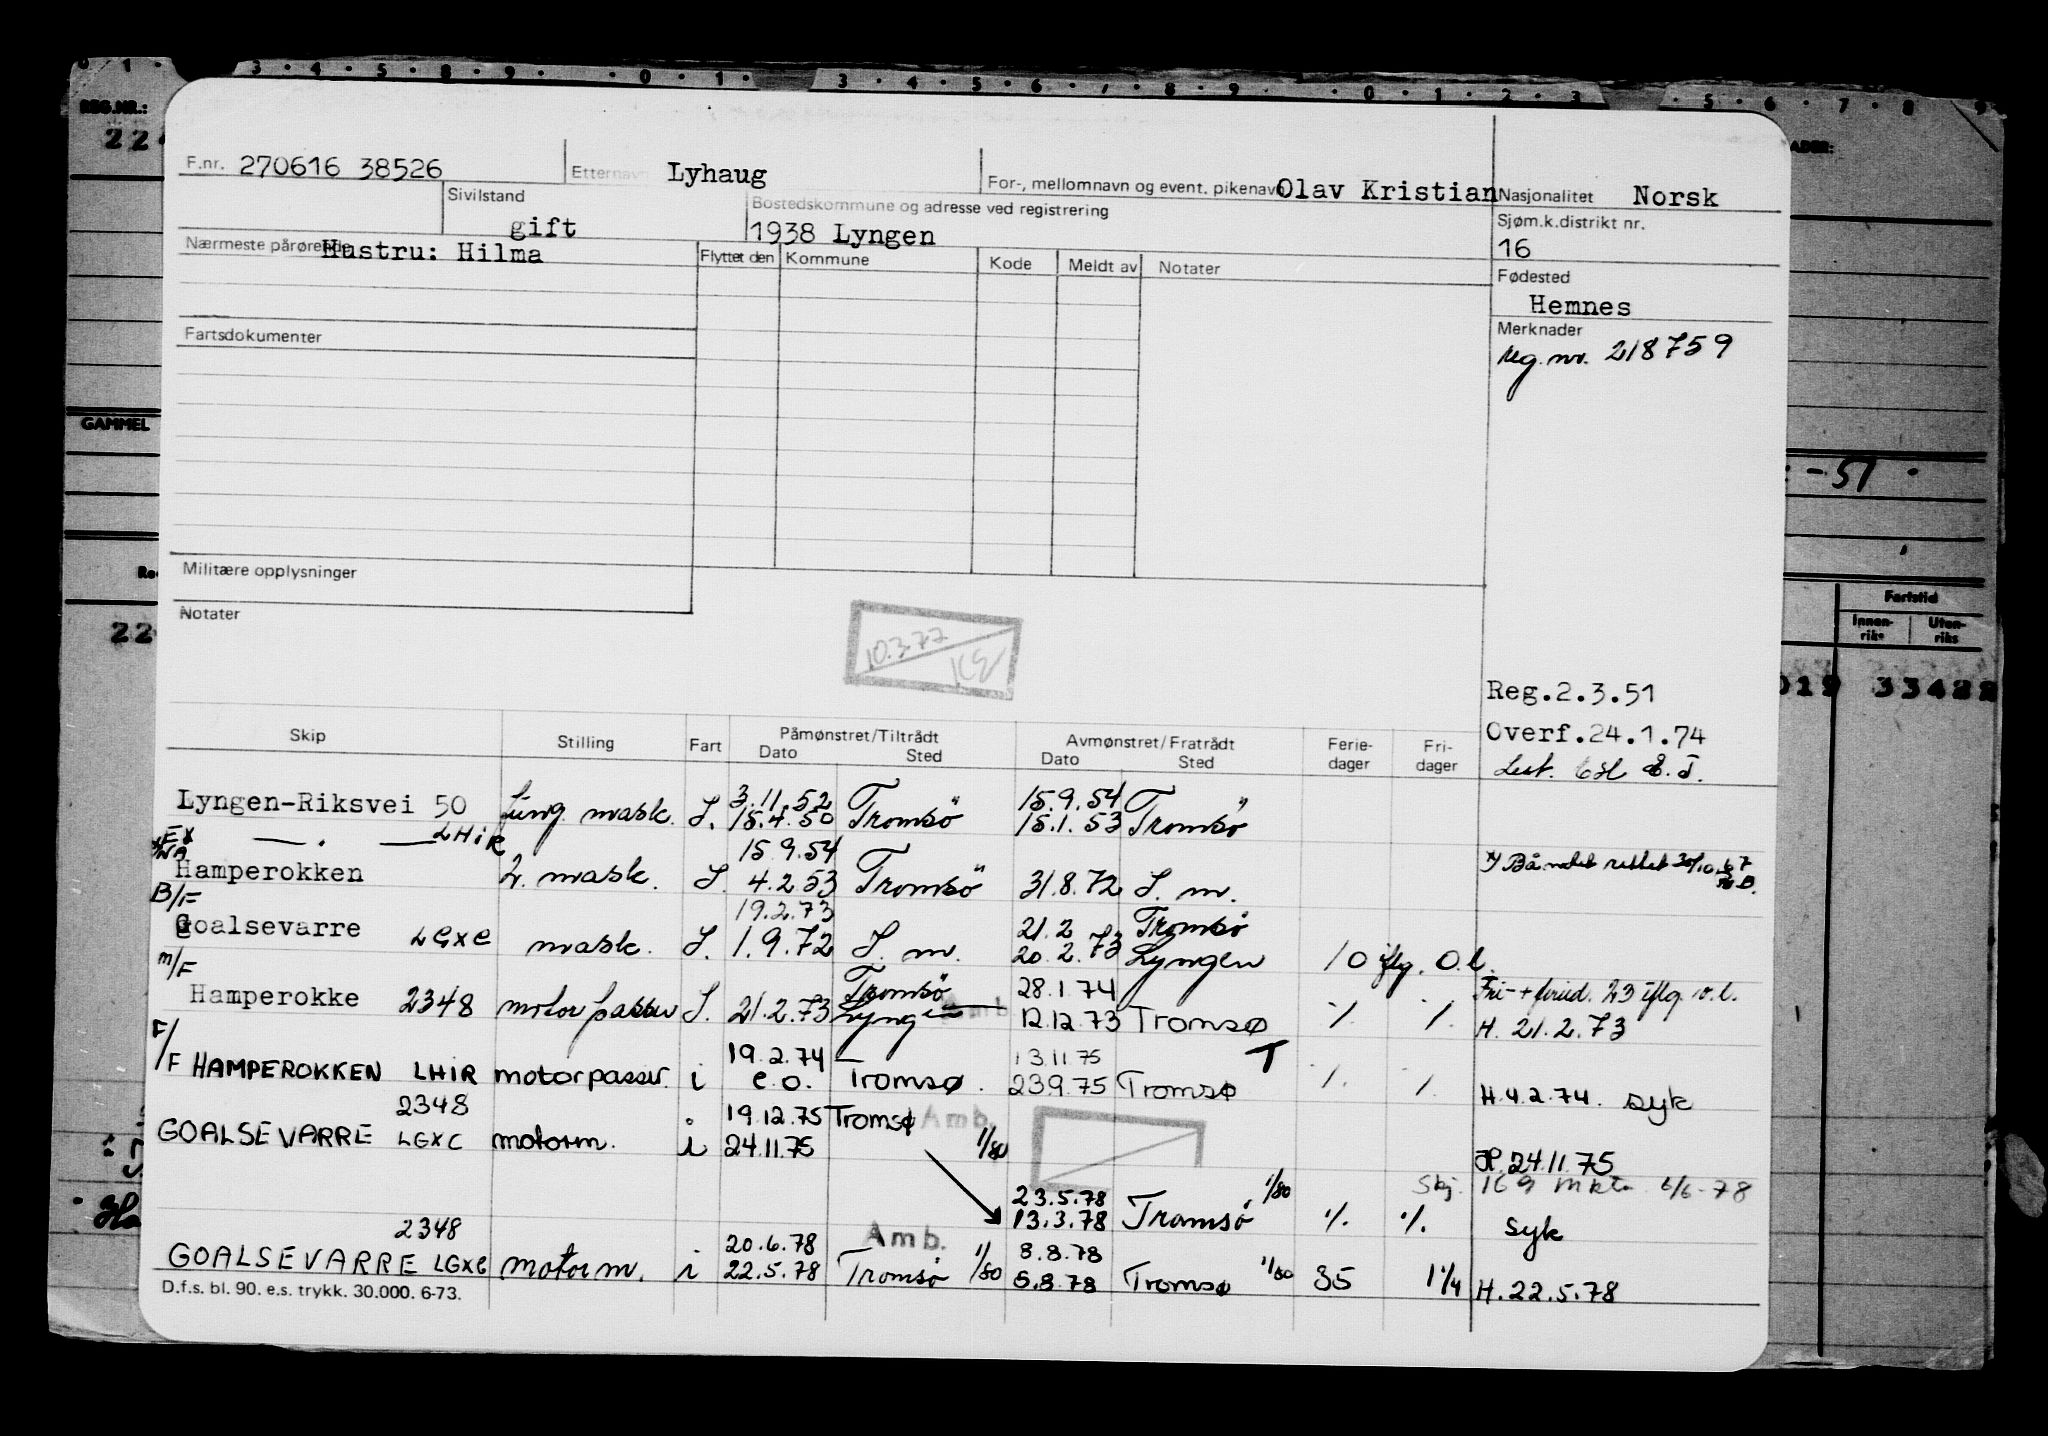 0 1 · 3 · 4 · 5 · 8 · 9 · 0 · 1 · 3 · 4 · 5 · 6 · 7 · 8 · 9 · 0 · 1 · 2 · 3 · 5 · 6 · 7 · 8 9
REG.NR.:
22
F.nr. 270616 38526 Etternavn Lyhaug For-, mellomnavn og event. pikenavn Olav Kristian Nasjonalitet Norsk
Sivilstand gift Bostedskommune og adresse ved registrering 1938 Lyngen Sjøm.k.distrikt nr. 16
Nærmeste pårørende Hustru: Hilma Flyttet den Kommune Kode Meldt av Notater
Fødested Hemnes
Fartsdokumenter Merknader
reg. nr. 218759
GAMMEL
-51
Militære opplysninger
Notater
22
Fartstid
Innen-riks Uten-riks
019 33422
10.3.77
KE
Reg.2.3.51
Overf.24.1.74
Skip Stilling Fart Påmønstret/Tiltrådt Dato Sted Avmønstret/Fratrådt Dato Sted Ferie-dager Fri-dager
3.11.52 15.9.54
Lyngen-Riksvei 50 mask. S. 15.4.50 Tromsö 15.1.53 Tromsö
LHiR 15.9.54
Hamperokken 2. mask. S. 4.2.53 Tromsö 31.8.72 S. m.
B/F 19.2.73 21.2 Tromsö
Goalsevarre LGXC mask. S. 1.9.72 S. m. 20.2.73 Lyngen 10 iflg. O.l.
M/F Tromsö 28.1.74 23 iflg. o.l.
Hamperokke 2348 motorpasser S. 21.2.73 Lyngen 12.12.73 Tromsø % % H. 21.2.73
F/F 19.2.74 13.11.75 T
HAMPEROKKEN LHIR motorpasser. i e.o. Tromsø. 23.9.75 Tromsø % % H.4.2.74. syk
2348 19.12.75 Tromsø Amb.
GOALSEVARRE LGXC motorm. i 24.11.75 1/80 H. 24.11.75
Skj. 169 mkt. 6/6-78
23.5.78 1/80
13.3.78 Tromsö % % syk
2348 20.6.78 Amb. 8.8.78
GOALSEVARRE LGXC motorm. i 22.5.78 Tromsö 1/80 5.8.78 Tromsø 1/80 35 1 1/4 H.22.5.78
D.f.s. bl. 90. e.s. trykk. 30.000. 6-73.